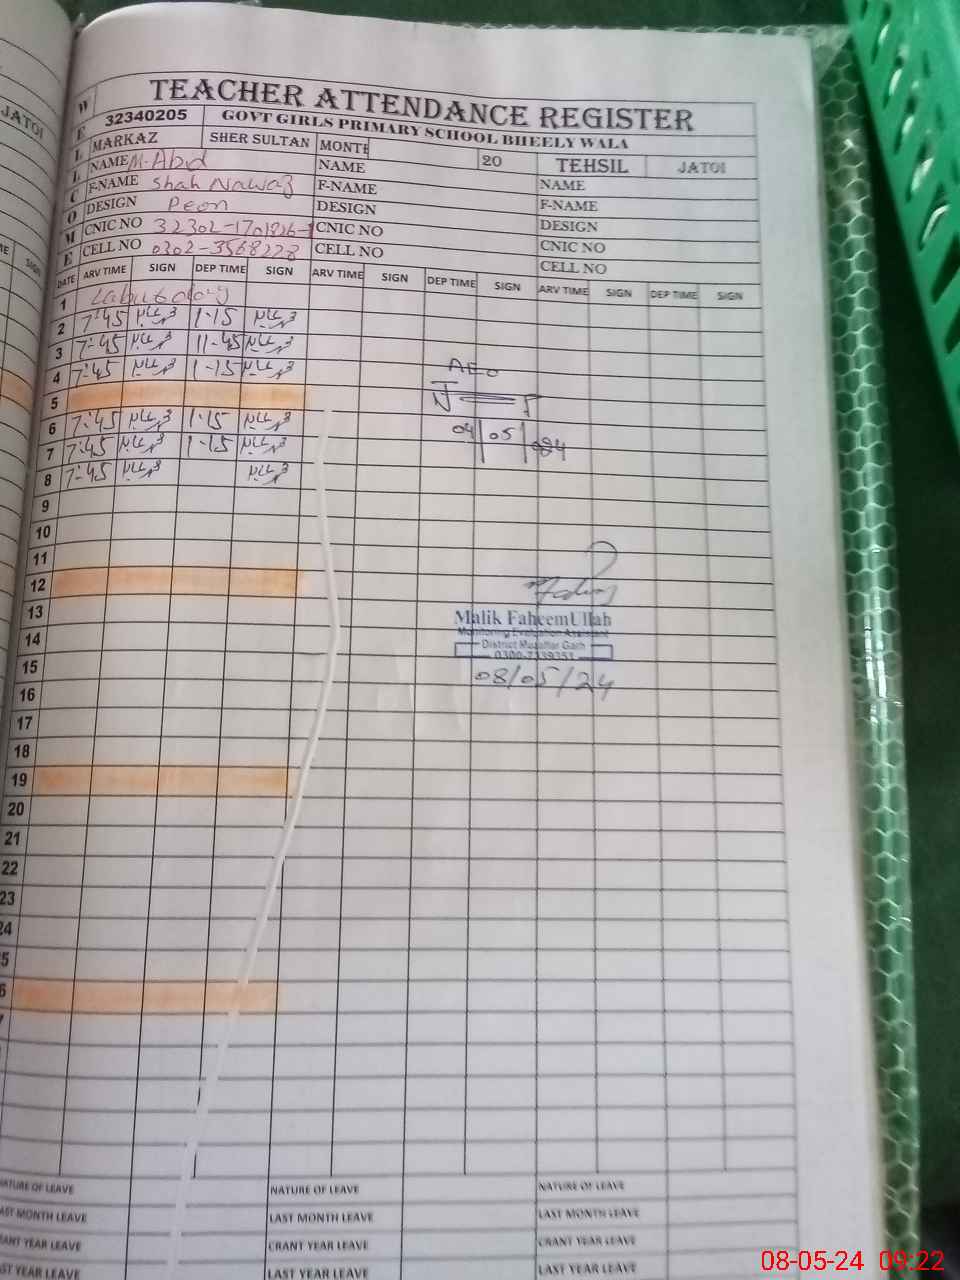 TEACHER ATTENDANCE REGISTER
32340205 GOVT GIRLS PRIMARY SCHOOL BHEELY WALA
MARKAZ SHER SULTAN MONTH 20 TEHSIL JATOI
W E L C O M E
NAME M. Abd NAME NAME
F-NAME Shah Nawaz F-NAME F-NAME
DESIGN Peon DESIGN DESIGN
CNIC NO 32302-1701826- CNIC NO CNIC NO
CELL NO 0302-3568228 CELL NO CELL NO
DATE ARV TIME SIGN DEP TIME SIGN ARV TIME SIGN DEP TIME SIGN ARV TIME SIGN DEP TIME SIGN
1
2 7:45 1-15
3 7:45 11-45
4 7:45 1-15
AEO
5
6 7:45 1-15
04/05/
7 7:45 1-15
8 7:45
9
10
11
12
13
Malik FaheemUllah
Monitoring Evaluation Assistant
14
District Muzaffar Garh
0300-7339351
15
08/05/24
16
17
18
19
20
21
22
23
24
NATURE OF LEAVE NATURE OF LEAVE NATURE OF LEAVE
LAST MONTH LEAVE LAST MONTH LEAVE LAST MONTH LEAVE
CRANT YEAR LEAVE CRANT YEAR LEAVE CRANT YEAR LEAVE
LAST YEAR LEAVE LAST YEAR LEAVE LAST YEAR LEAVE
JATOI
SIGN
08-05-24 09:22